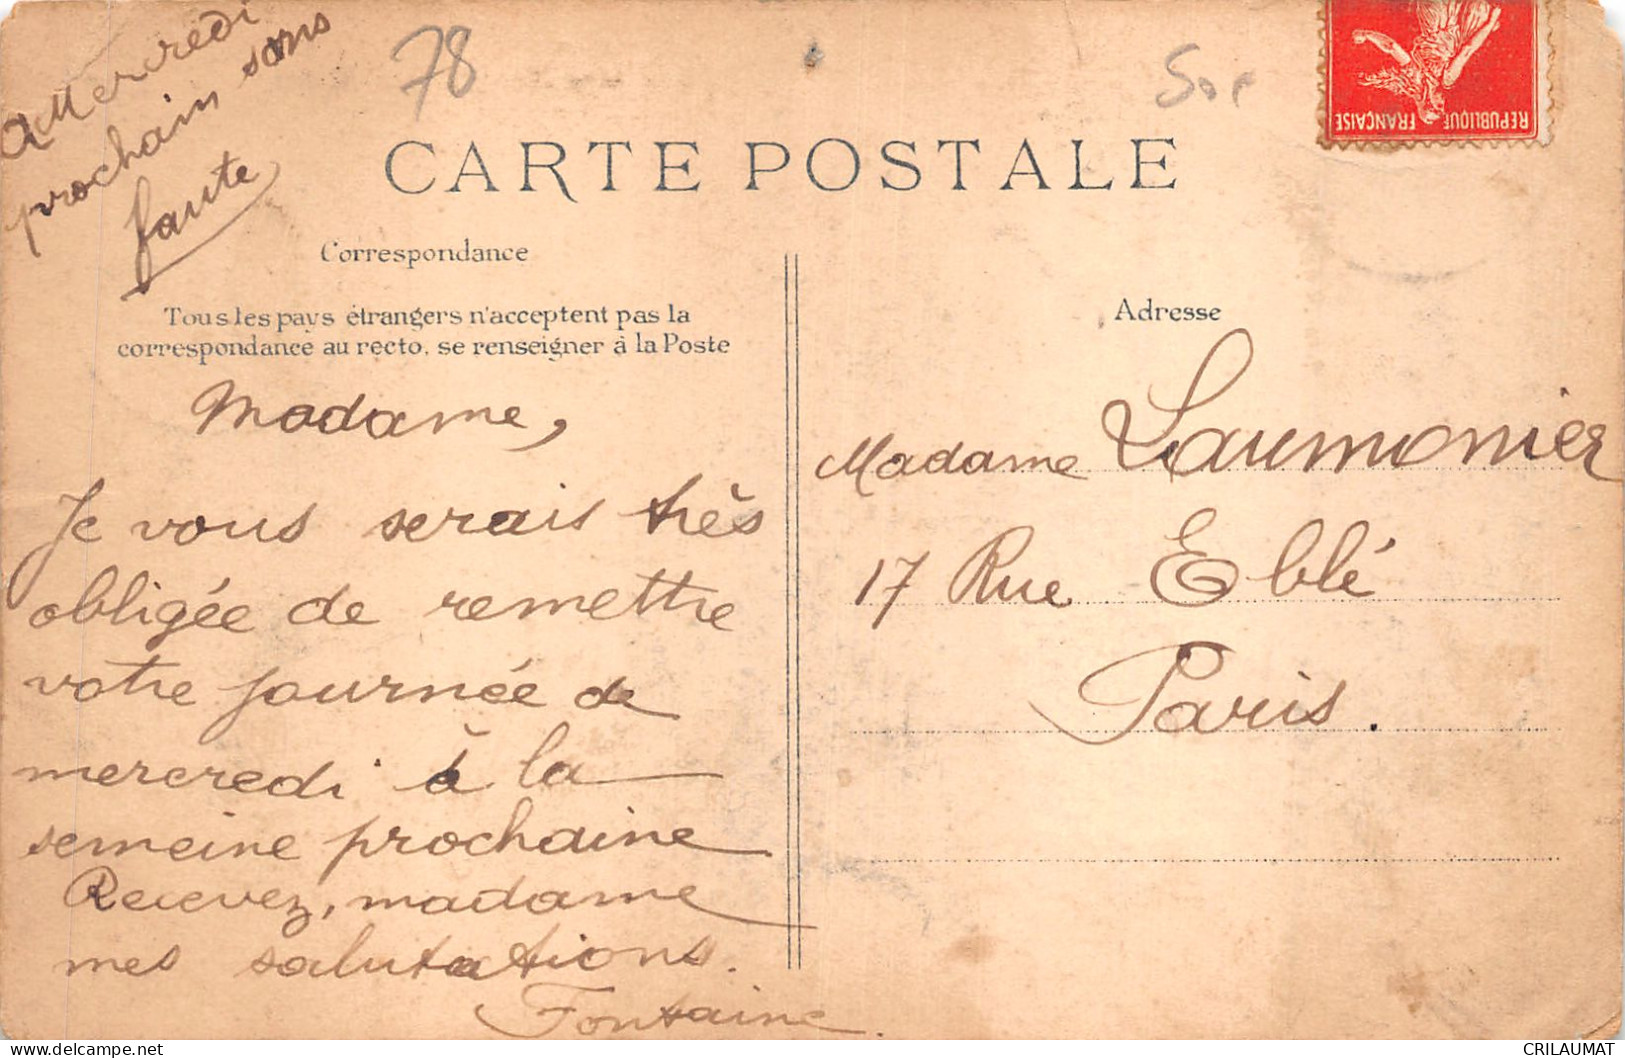 a Mercredi
prochain sans
faute
78
CARTE POSTALE
RÉPUBLIQUE FRANÇAISE
Correspondance
Tous les pays étrangers n'acceptent pas la
correspondance au recto, se renseigner à la Poste
Madame,
Je vous serais très
obligée de remettre
votre journée de
mercredi à la
semeine prochaine
Recevez, madame
mes salutations.
Fontaine.
Adresse
Madame Laumonier
17 Rue Eblé
Paris.
CRILAUMAT